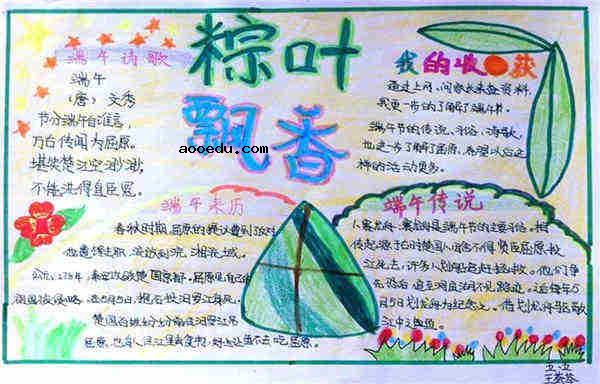 粽叶
飘香
aooedu.com
端午诗歌
端午
（唐）文秀
节分端午自谁言
万古传闻为屈原。
堪笑楚江空渺渺,
不能洗得直臣冤。
我的收获
通过上网、问家长来查资料,
我更一步的了解了端午节。
端午节的传说、习俗、诗歌,
也进一步了解了屈原,希望以后这
样的活动更多。
端午来历
春秋时期,屈原的 遭到反对
他遭 去职, 流放到沅、湘流域。
278年,秦军攻破楚国京都。屈原见自己的
祖国被侵略, 5月5日,抱石投汨罗江身死。
楚国百姓 汨罗江吊
屈原
端午传说
赛龙舟, 是端午节的主要习俗。相
传起源于古时楚国人因舍不得贤臣屈原投
江死去,许多人划船追赶拯救。他们争
先恐后,追至洞庭湖不见踪迹。 每年5
月5日划龙舟以纪念之。借划龙舟驱散
江中之鱼。